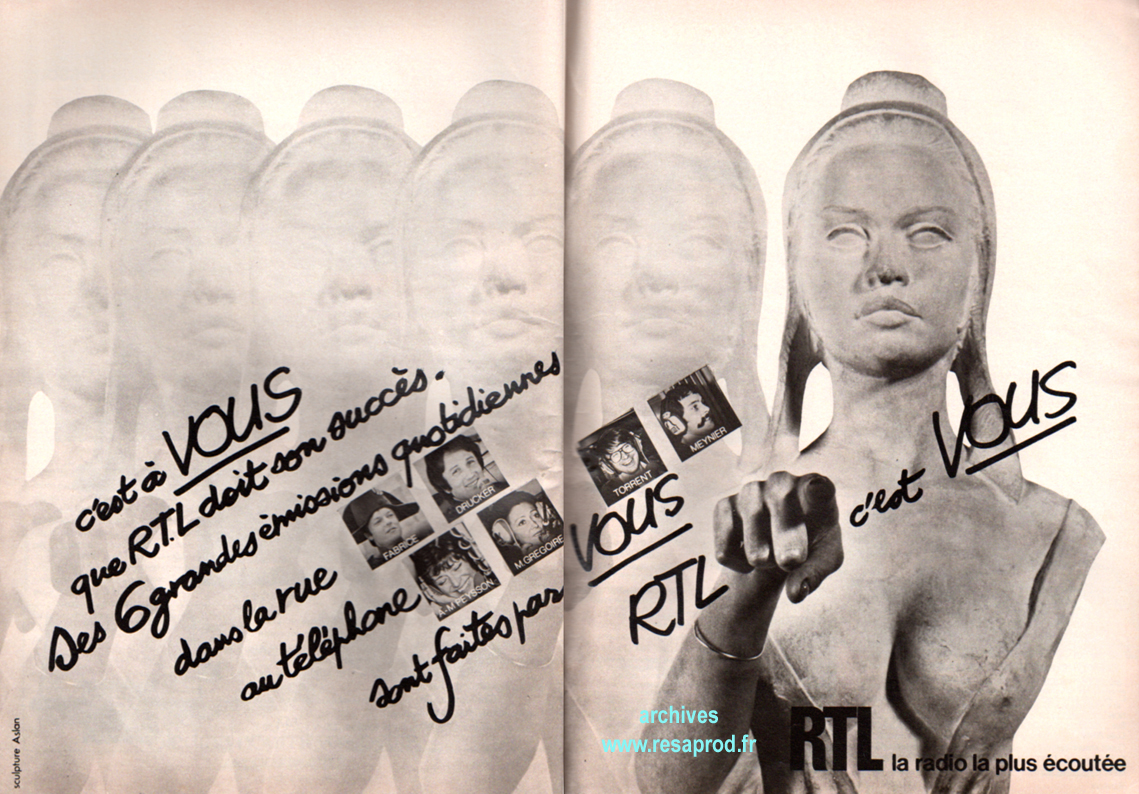 c'est à VOUS
que RTL doit son succès.
Des 6 grandes émissions quotidiennes
dans la rue
au téléphone
sont faites par VOUS
FABRICE
DRUCKER
A-M PEYSSON
M.GREGOIRE
TORRENT
MEYNIER
RTL c'est VOUS
RTL la radio la plus écoutée
sculpture Aslan
archives
www.resaprod.fr